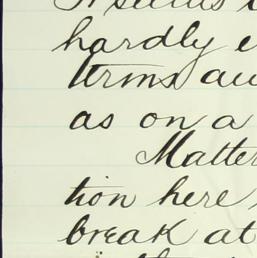 It seems
hardly e
terms au
as on a
Matter
tion here
break at